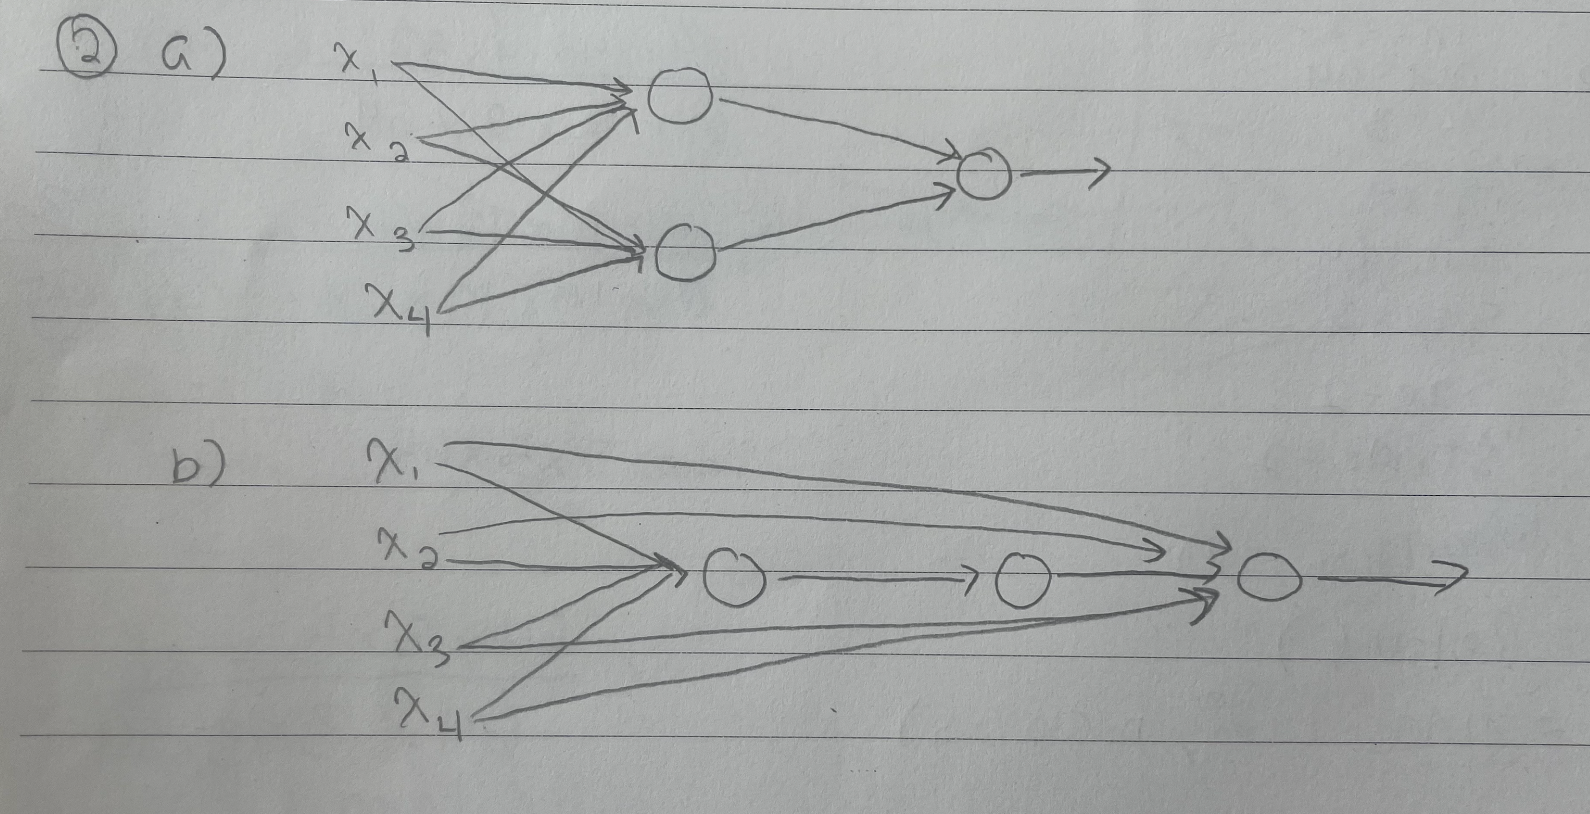 ② a) x₁
x₂
x₃
x₄
b) x₁
x₂
x₃
x₄